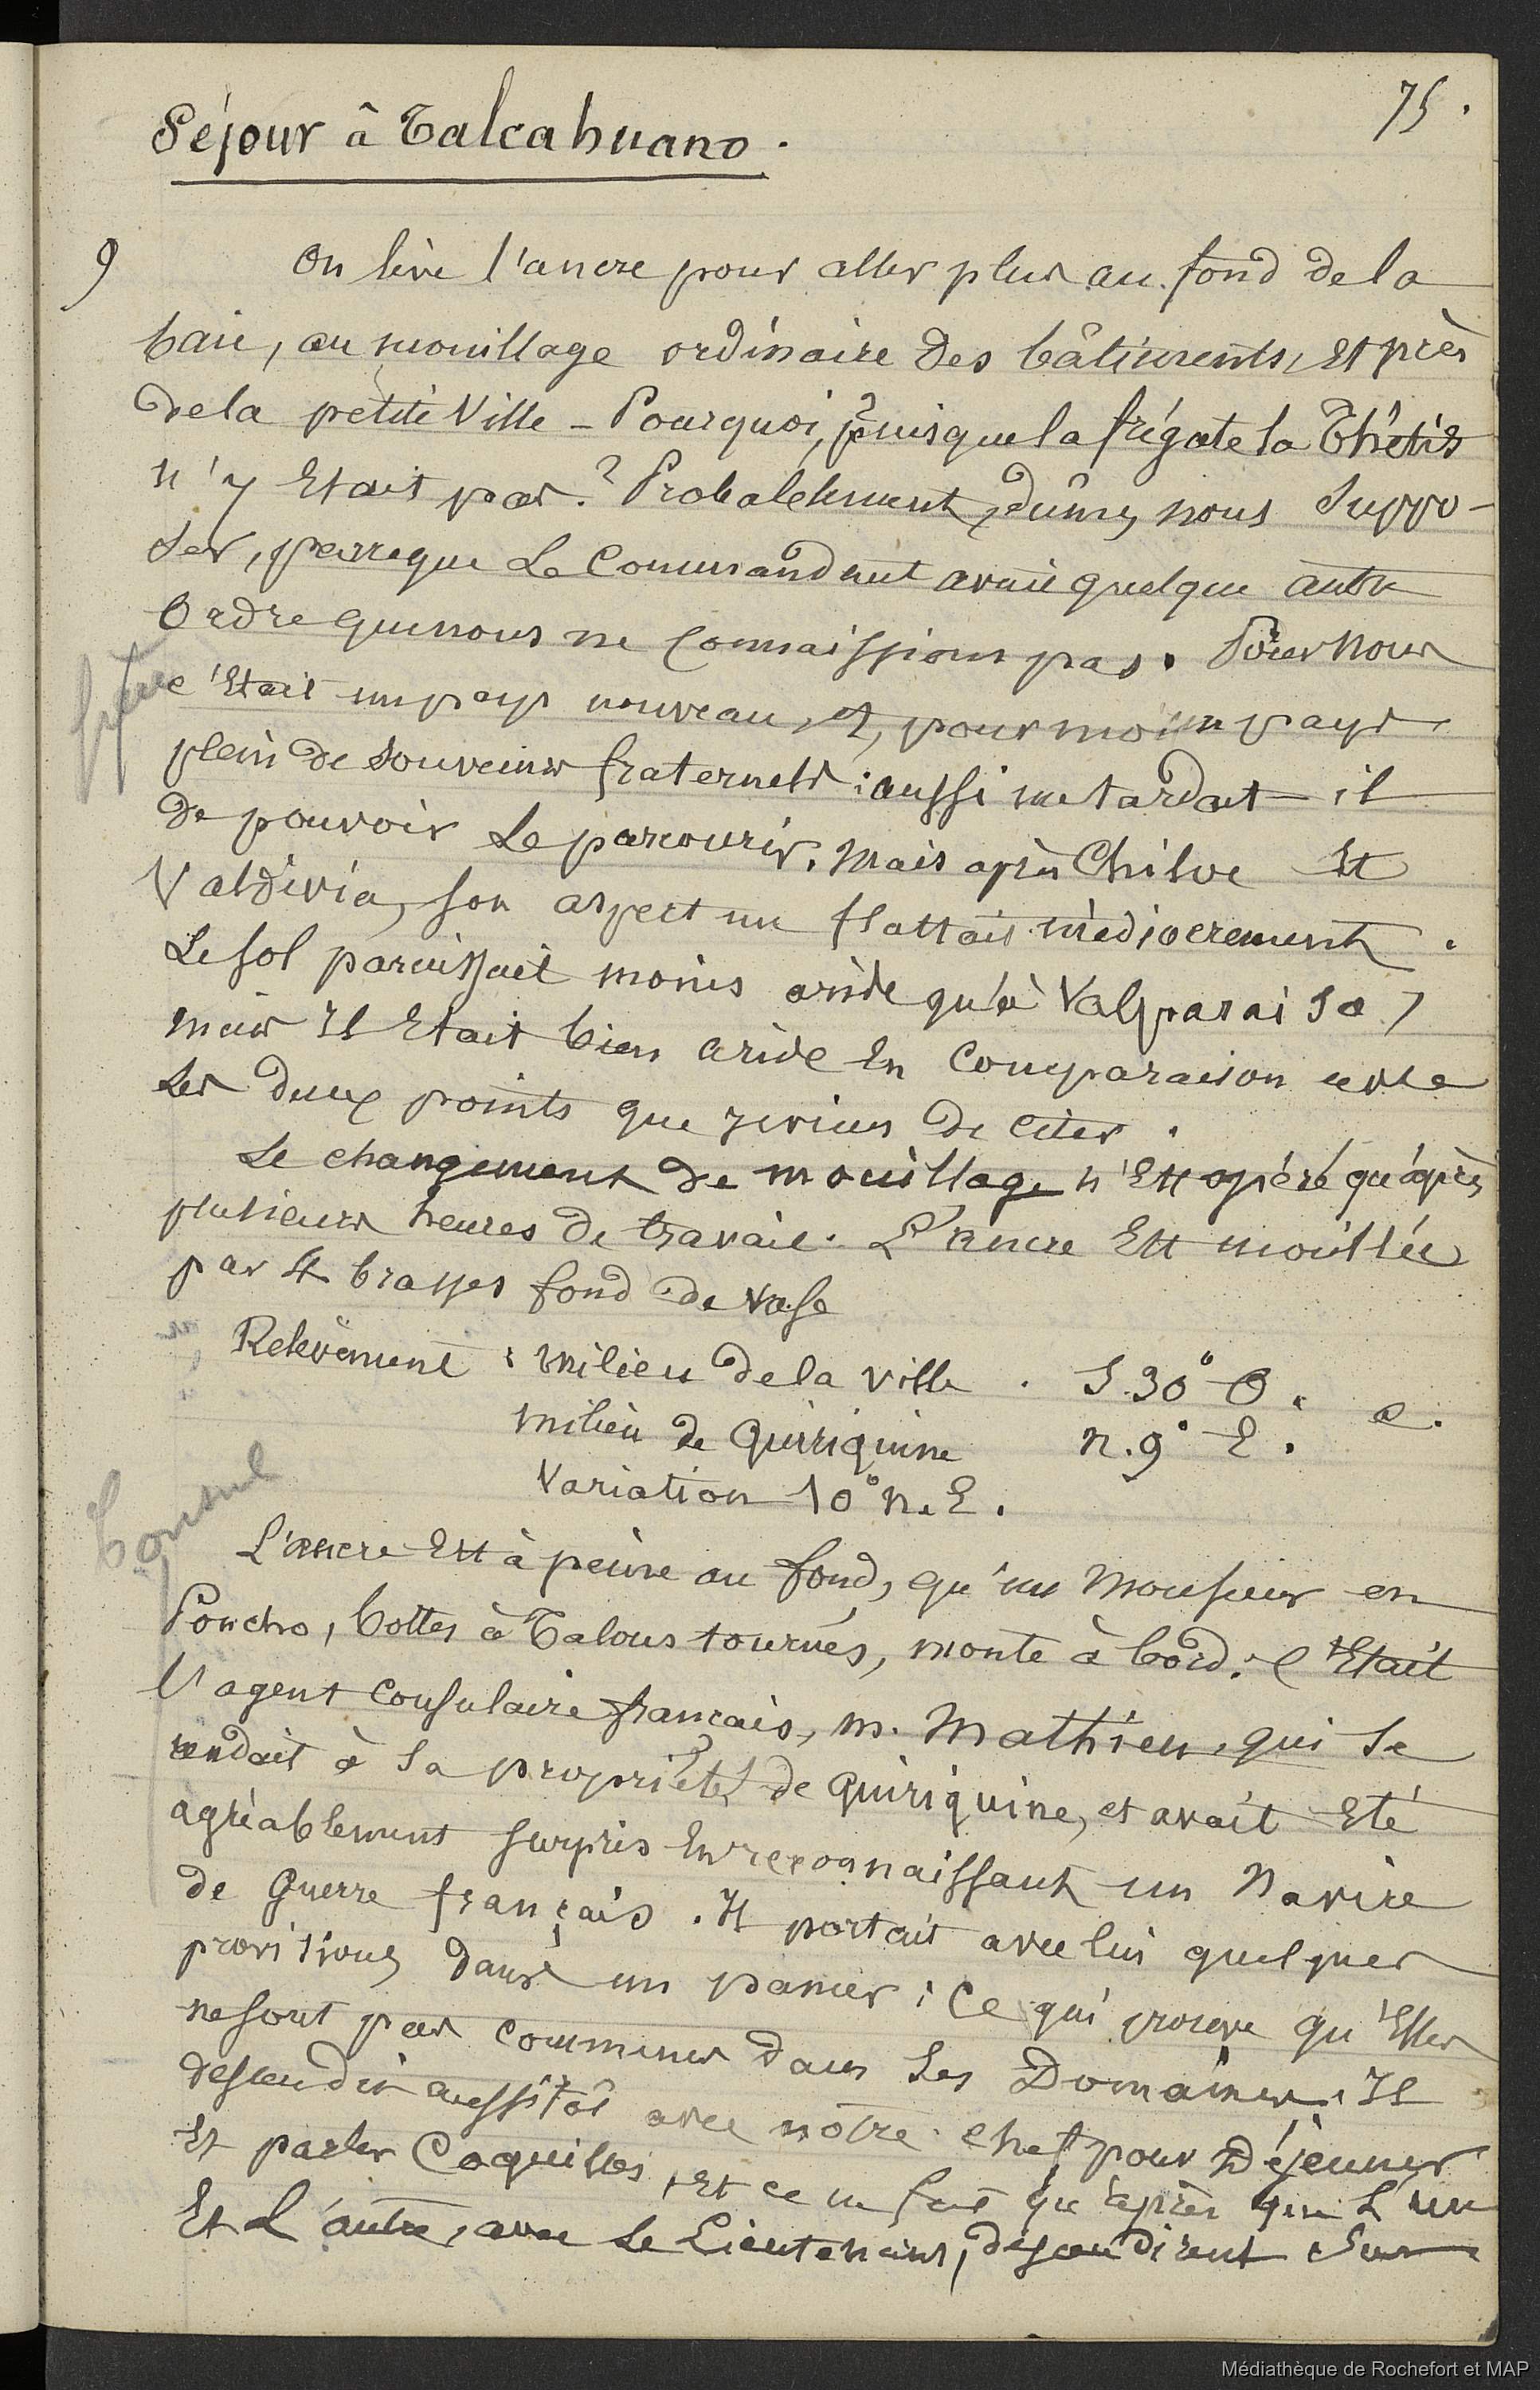 75.
Séjour à Talcahuano.
9
On lève l'ancre pour aller plus au fond de la
baie, au mouillage ordinaire des bâtiments, et près
de la petite Ville – Pourquoi, puisque la frégate la Thétis
n'y Etait pas ? Probablement, dûmes nous suppo-
ser, parceque Le Commandant avait quelque autre
Ordre que nous ne Connaissions pas. Pour nous
frère
c'Etait un pays nouveau, et, pour moi un pays
plein de souvenirs fraternels : aussi me tardait-il
de pouvoir Le parcourir. Mais après Chiloe Et
Valdivia, son aspect me flattait médiocrement.
Le sol paraissait moins aride qu'à Valparaiso,
mais Il Etait bien aride En Comparaison
Les deux points que je viens de citer.
Le changement de mouillage n'Est opéré qu'après
plusieurs heures de travail. L'ancre Est mouillée
par 4 brasses fond de vase
Relèvement : milieu de la ville . S.30° O. C.
milieu de Quiriquine N.9° E.
Variation 10° N.E.
Consul
L'ancre Est à peine au fond, qu'un Monsieur en
Poncho, bottes à Talons tournés, monte à bord. C'Etait
l'agent Consulaire français, M. Mathieu, qui se
rendait à Sa propriété de Quiriquine, et avait Eté
agréablement surpris En reconnaissant un Navire
de Guerre français. Il portait avec lui quelques
provisions dans un panier ; Ce qui prouve qu'Elles
ne sont pas communes dans Ses Domaines. Il
descendit aussitôt avec notre chef pour Déjeuner
Et parler Coquilles, Et ce ne fut qu'après que L'un
Et L'autre, avec Le Lieutenant, descendirent Sur
Médiathèque de Rochefort et MAP